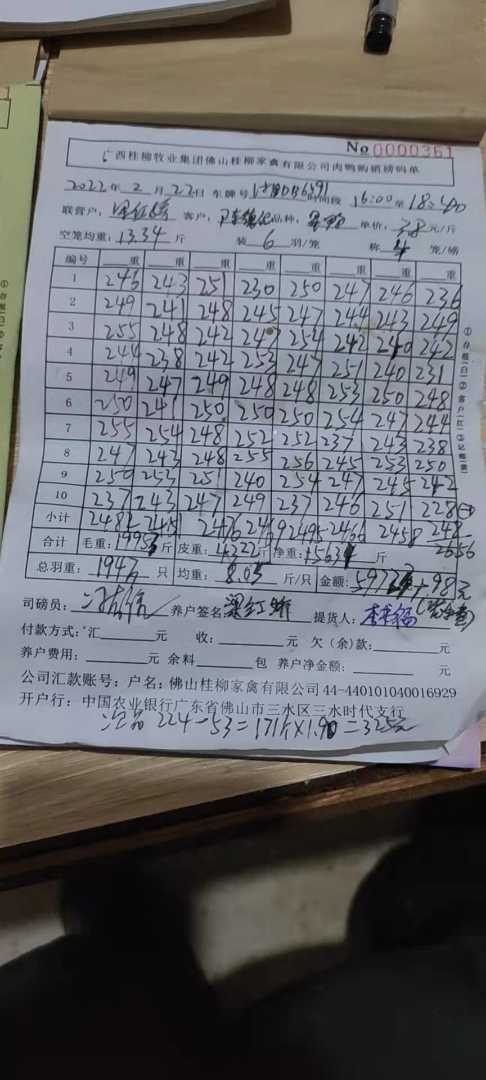 No 0000361
广西桂柳牧业集团佛山桂柳家禽有限公司肉鸭购销磅码单
2022年 2月 22日 车牌号 时间段 16:00至18:40
联营户: 客户: 品种: 单价:3.8元/斤
空笼均重:13.34斤 装6羽/笼 称4笼/磅
编号 重 重 重 重 重 重 重 重
1 246 243 251 230 250 247 246 236
2 249 241 248 245 247 244 243 249
3 255 248 242 247 254 242 240 242
4 244 238 242 253 247 251 240 231
5 249 247 249 248 248 253 250 248
6 250 241 250 250 250 254 247 244
7 255 254 248 252 252 237 243 238
8 247 243 248 255 256 245 253 250
9 250 253 251 240 254 247 245 242
10 237 243 247 249 237 246 251 228
小计 2495 2466 2458
合计 毛重: 斤 皮重: 斤 净重: 斤
总羽重: 只 均重:8.05斤/只 金额: +98元
司磅员: 养户签名: 提货人:
付款方式:汇 元 收: 元 欠(余)款: 元
养户费用: 元 余料 包 养户净金额: 元
公司汇款账号:户名:佛山桂柳家禽有限公司44-440101040016929
开户行:中国农业银行广东省佛山市三水区三水时代支行
224-53=171斤×1.90=325元
①存根(白)②客户(红)③记帐(黄)